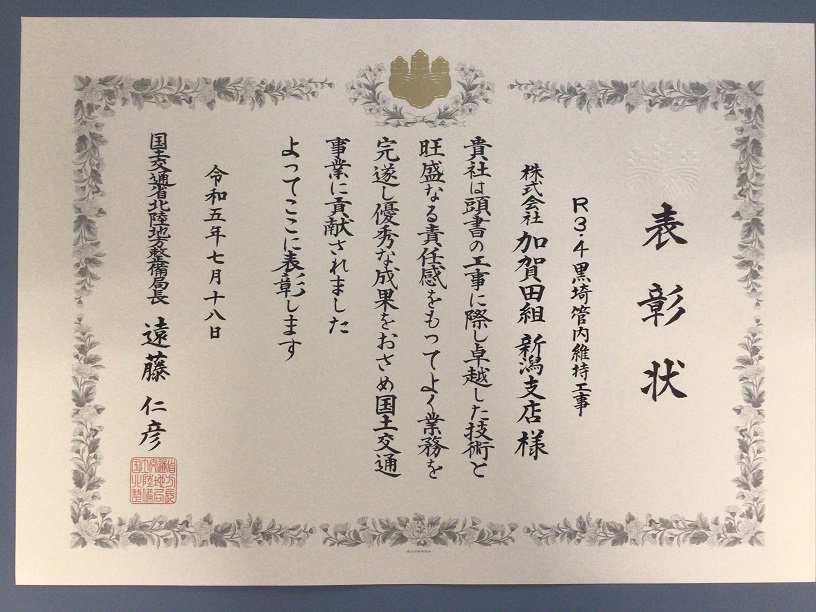 表彰状
R3・4黒埼管内維持工事
株式会社 加賀田組 新潟支店 様
貴社は頭書の工事に際し卓越した技術と
旺盛なる責任感をもってよく業務を
完遂し優秀な成果をおさめ国土交通
事業に貢献されました
よってここに表彰します
令和五年七月十八日
国土交通省北陸地方整備局長 遠藤 仁彦